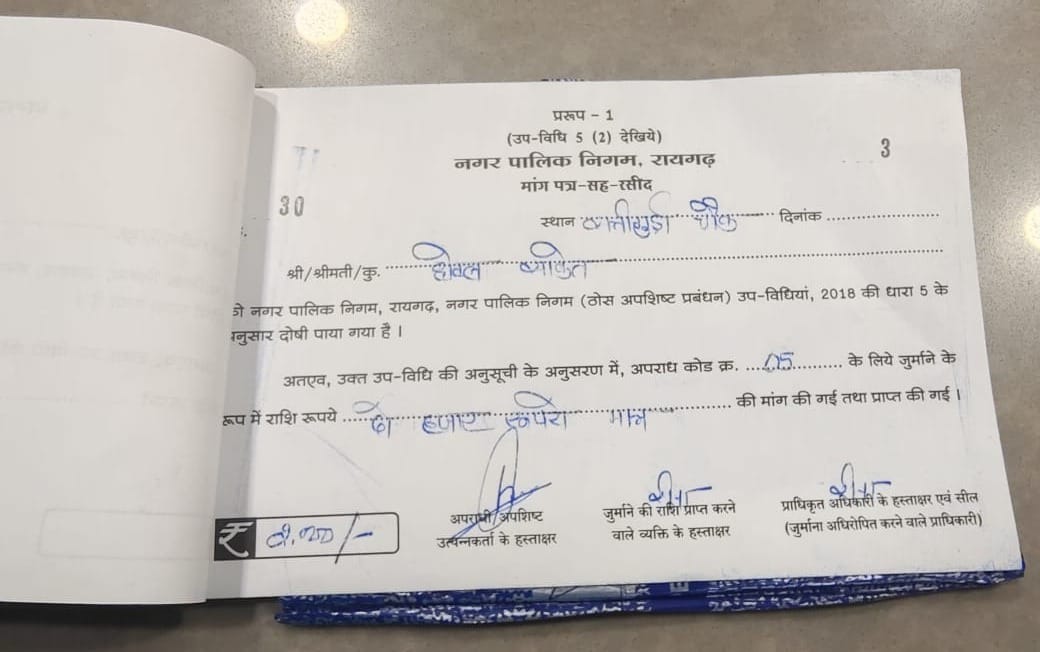 प्ररूप - 1
(उप-विधि 5 (2) देखिये)
नगर पालिक निगम, रायगढ़
3
मांग पत्र-सह-रसीद
30
स्थान चौक दिनांक
श्री/श्रीमती/कु. होटल
नगर पालिक निगम, रायगढ़, नगर पालिक निगम (ठोस अपशिष्ट प्रबंधन) उप-विधियां, 2018 की धारा 5 के
नुसार दोषी पाया गया है ।
अतएव, उक्त उप-विधि की अनुसूची के अनुसरण में, अपराध कोड क्र. 05 के लिये जुर्माने के
रूप में राशि रूपये दो हजार रूपये मात्र की मांग की गई तथा प्राप्त की गई ।
अपराधी/अपशिष्ट
उत्पन्नकर्ता के हस्ताक्षर
जुर्माने की राशि प्राप्त करने
वाले व्यक्ति के हस्ताक्षर
प्राधिकृत अधिकारी के हस्ताक्षर एवं सील
(जुर्माना अधिरोपित करने वाले प्राधिकारी)
₹